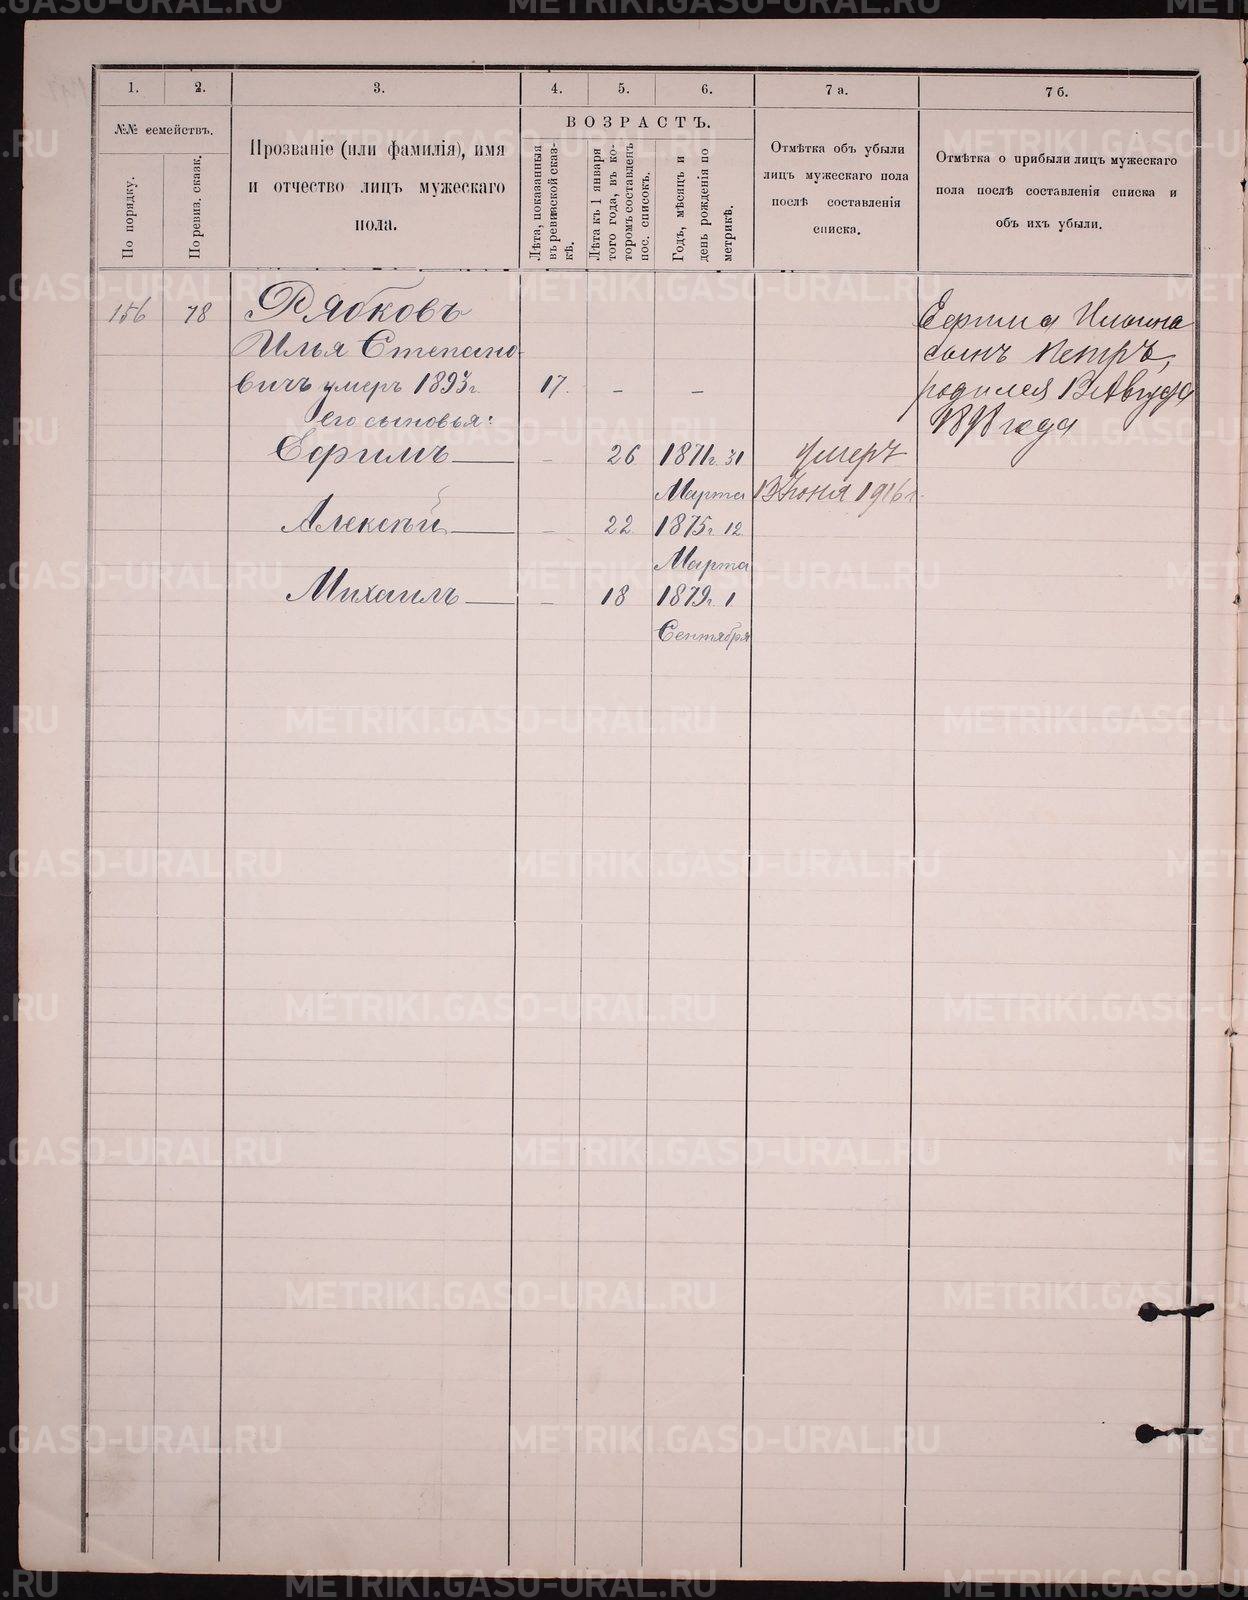 1.
2.
3.
4.
5.
6.
7 а.
7 б.
№№ семействъ.
По порядку.
По ревиз. сказк.
Прозваніе (или фамилія), имя
и отчество лицъ мужескаго
пола.
ВОЗРАСТЪ.
Лѣта, показанныя
въ ревизской сказ-
кѣ.
Лѣта къ 1 января
того года, въ ко-
торомъ составленъ
пос. списокъ.
Годъ, мѣсяцъ и
день рожденія по
метрикѣ.
Отмѣтка объ убыли
лицъ мужескаго пола
послѣ составленія
списка.
Отмѣтка о прибыли лицъ мужескаго
пола послѣ составленія списка и
объ ихъ убыли.
156 78 Рябковъ
Илья Степано-
вичъ умеръ 1893 г. 17. – –
его сыновья:
Ефимъ — – 26 1871 г. 31
Марта
Алексѣй — – 22. 1875 г. 12.
Марта
Михаилъ — – 18 1879 г. 1
Сентября
умеръ
13 Іюня 1916 г.
Ефима Ильина
сынъ Петръ,
родился 13 Августа
1898 года
METRIKI.GASO-URAL.RU